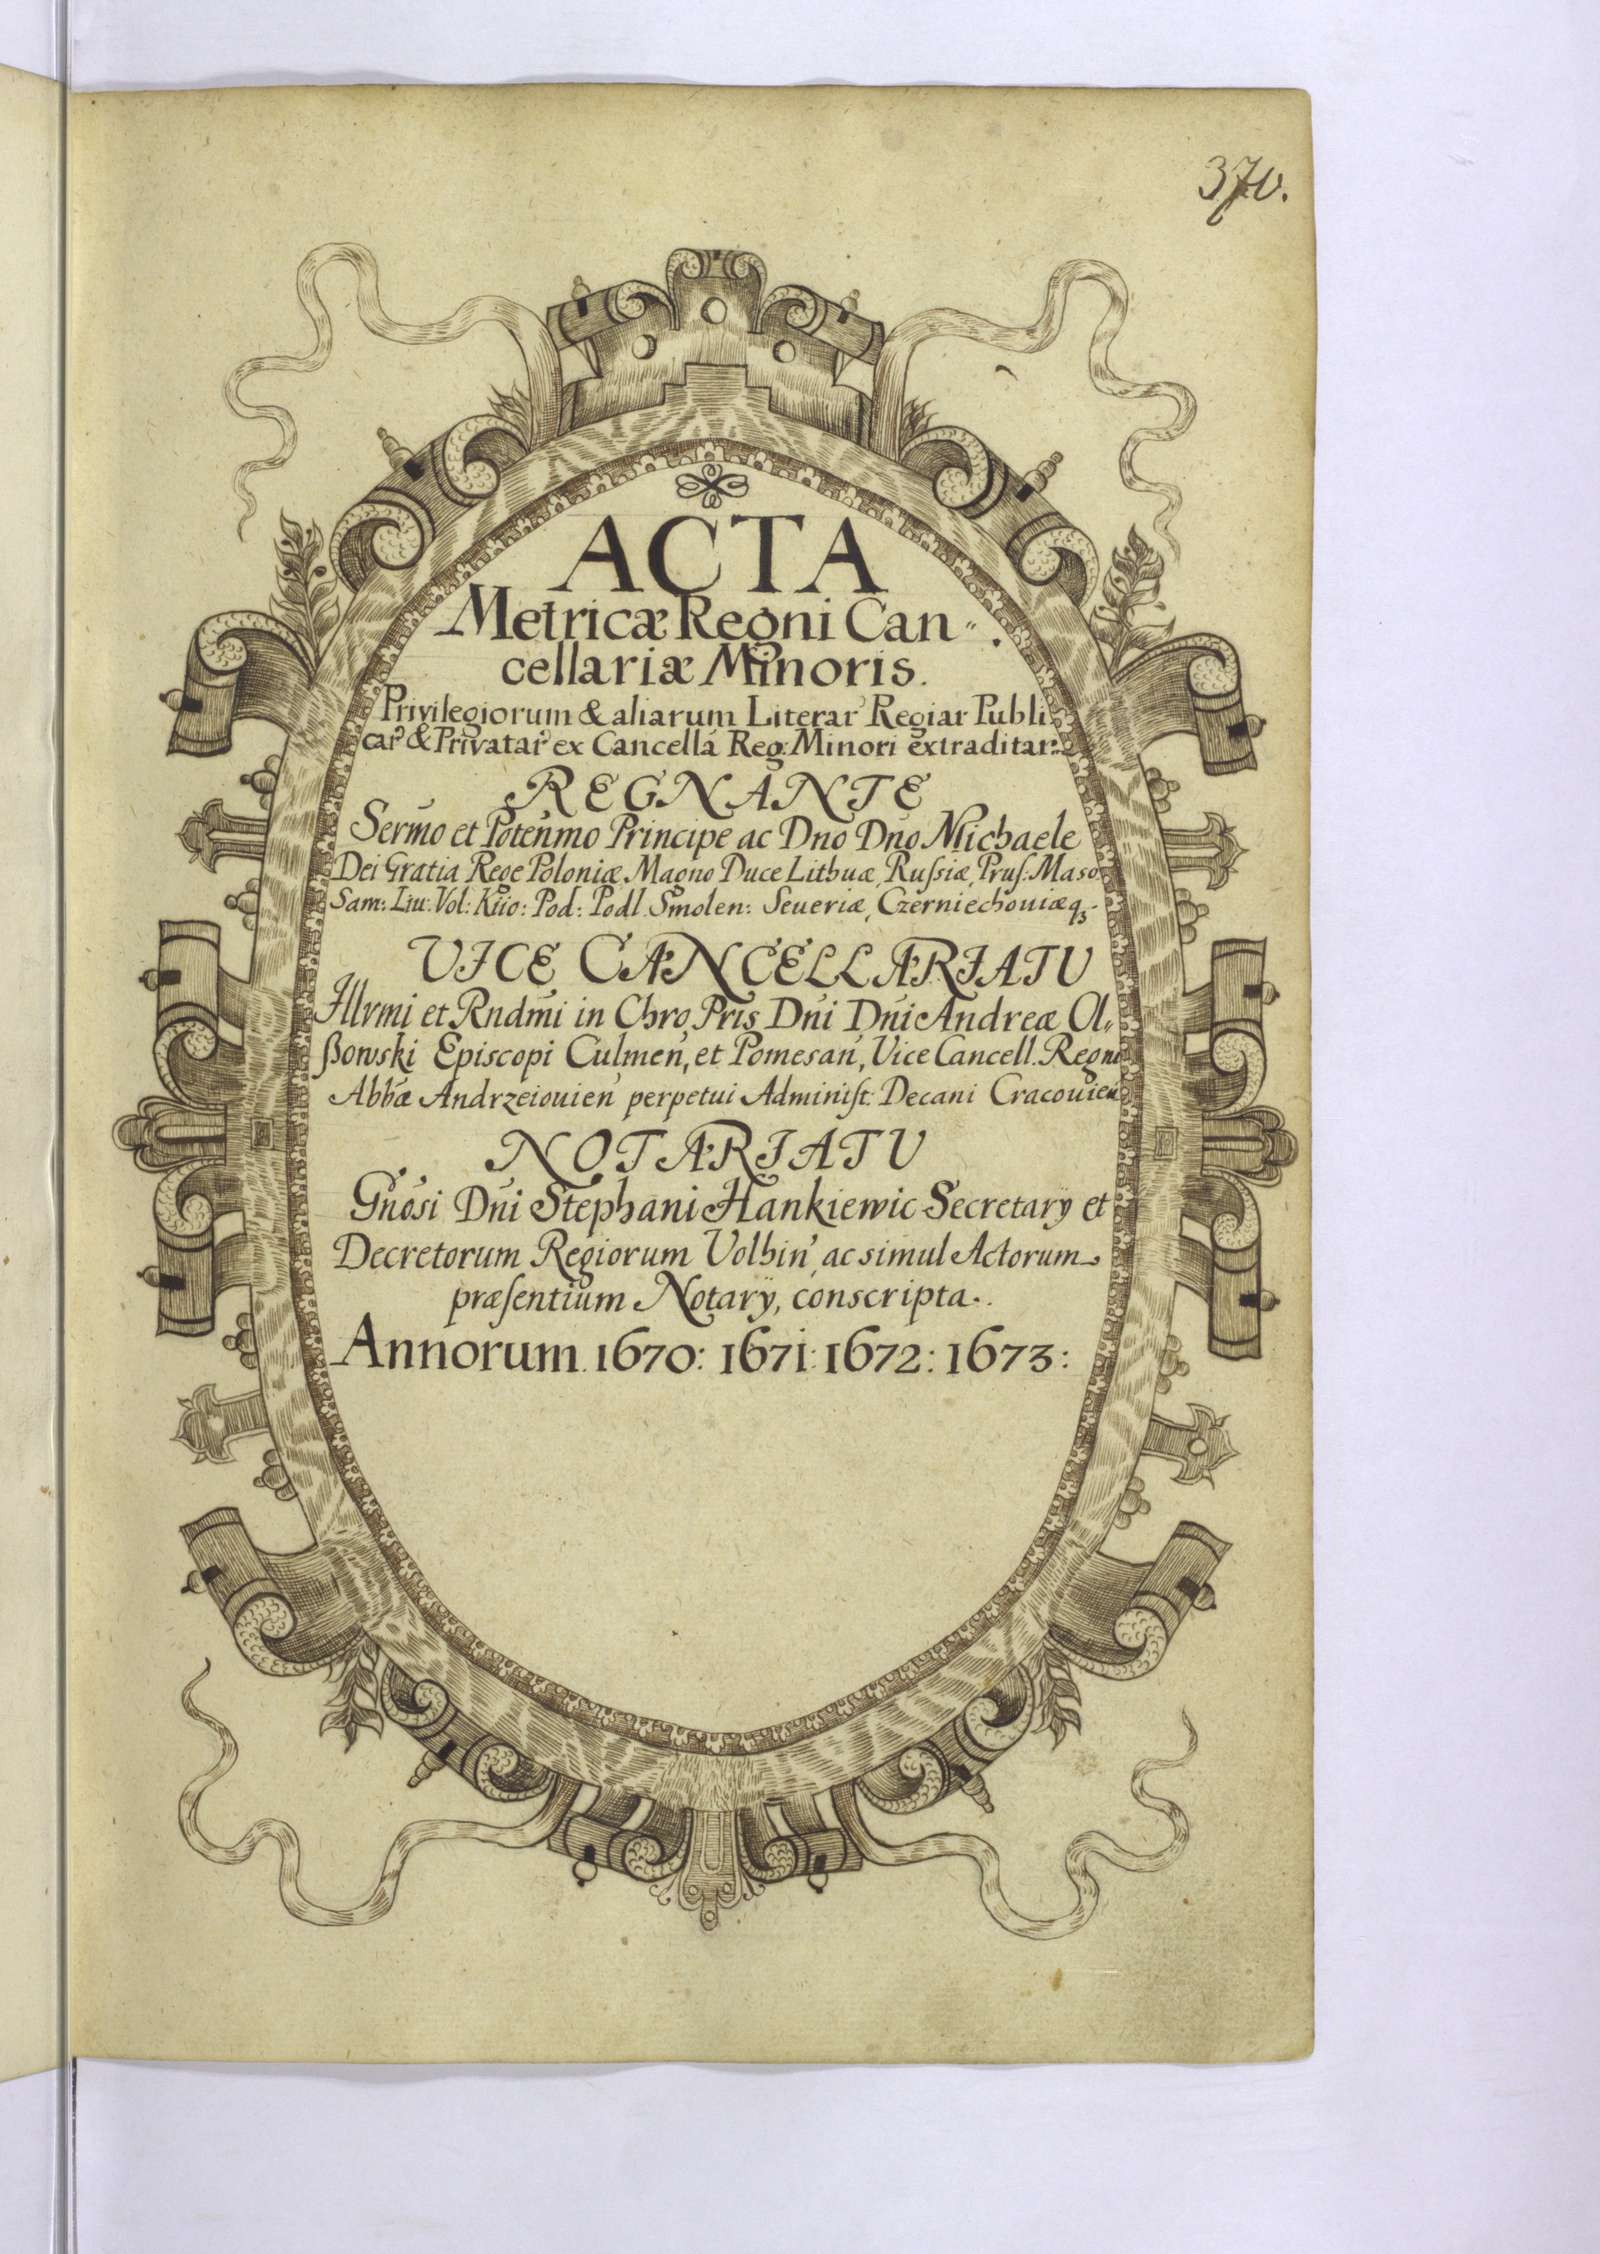 370.
ACTA
Metricæ Regni Can-
cellariæ Minoris.
Privilegiorum & aliarum Literar Regiar Publi
car & Privatar ex Cancella Reg: Minori extraditar:
REGNANTE
Sermo et Potenmo Principe ac Dno Dno Michaele
Dei Gratia Rege Poloniæ, Magno Duce Lithuæ, Russiæ, Prus: Maso
Sam: Liu: Vol: Kiio: Pod: Podl. Smolen: Seueriæ, Czerniechouiæq3.
VICE CANCELLARIATU
Illrmi et Rndmi in Chro Pris Dni Dni Andreæ Ol-
ßowski Episcopi Culmen, et Pomesan, Vice Cancell. Regni
Abbæ Andrzeiouien perpetui Administ: Decani Cracouien
NOTARIATU
Gnosi Dni Stephani Hankiewic Secretarÿ et
Decretorum Regiorum Volhin, ac simul Actorum
præsentium Notarÿ, conscripta.
Annorum 1670: 1671: 1672: 1673: